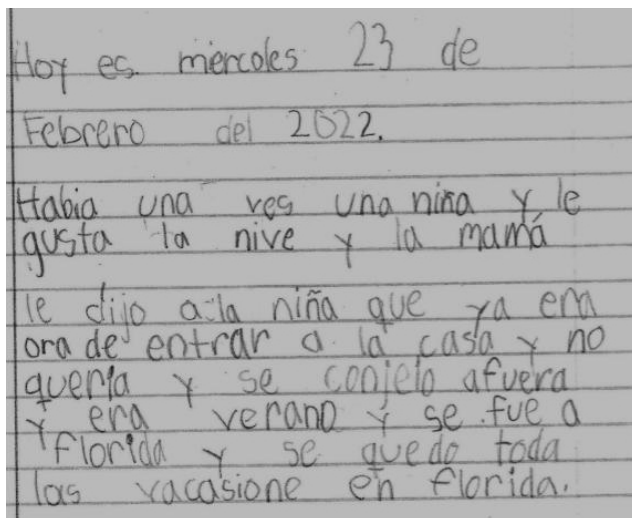 Hoy es. miercoles 23 de
Febrero del 2022.
Habia una ves una nina y le
gusta la nive y la mamá
le dijo a la niña que ya era
ora de entrar a la casa y no
queria y se conjelo afuera
y era verano y se fue a
florida y se quedo toda
las vacasione en florida.